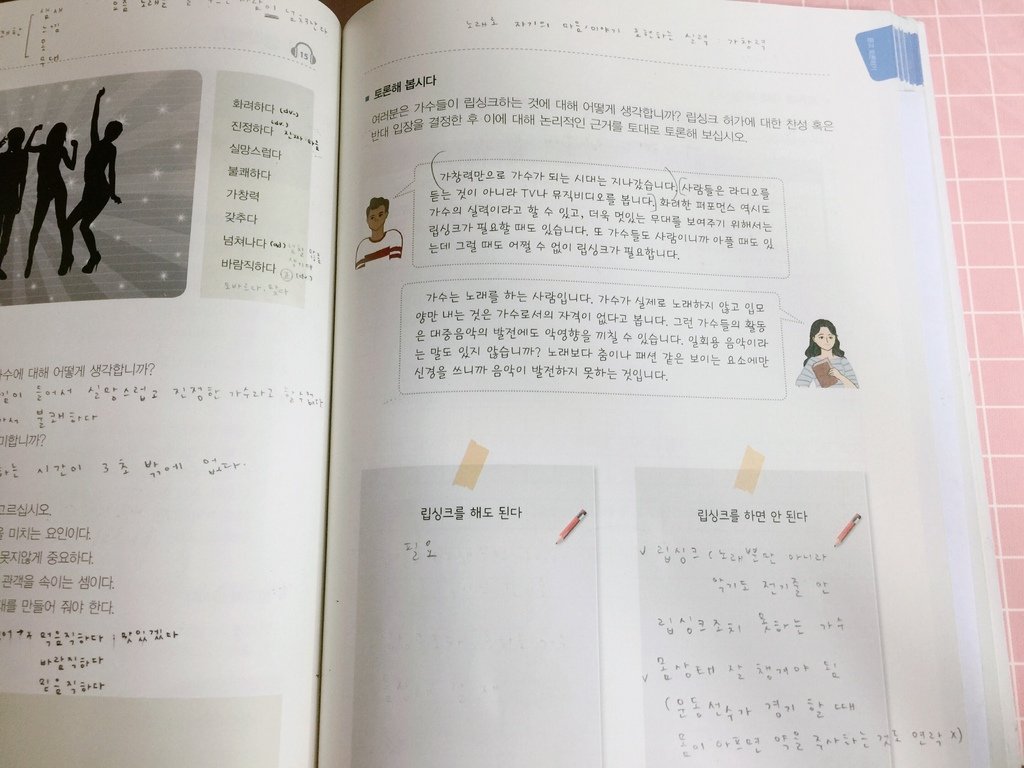 냄새
느낌
요즘 노래를
15
화려하다 (dv.)
진정하다 (dv.)
실망스럽다
불쾌하다
가창력
갖추다
넘쳐나다
바람직하다
올바르다, 맞다
가수에 대해 어떻게 생각합니까?
들어서 실망스럽고 진정한 가수라고 할 수 없다
불쾌하다
미합니까?
하는 시간이 3초 밖에 없다.
고르십시오.
을 미치는 요인이다.
못지않게 중요하다.
관객을 속이는 셈이다.
대를 만들어 줘야 한다.
먹음직하다 : 맛있겠다
바람직하다
믿음직하다
노래로 자기의 마음/이야기 표현하는 실력 : 가창력
■ 토론해 봅시다
여러분은 가수들이 립싱크하는 것에 대해 어떻게 생각합니까? 립싱크 허가에 대한 찬성 혹은
반대 입장을 결정한 후 이에 대해 논리적인 근거를 토대로 토론해 보십시오.
가창력만으로 가수가 되는 시대는 지나갔습니다. 사람들은 라디오를
듣는 것이 아니라 TV나 뮤직비디오를 봅니다. 화려한 퍼포먼스 역시도
가수의 실력이라고 할 수 있고, 더욱 멋있는 무대를 보여주기 위해서는
립싱크가 필요할 때도 있습니다. 또 가수들도 사람이니까 아플 때도 있
는데 그럴 때도 어쩔 수 없이 립싱크가 필요합니다.
가수는 노래를 하는 사람입니다. 가수가 실제로 노래하지 않고 입모
양만 내는 것은 가수로서의 자격이 없다고 봅니다. 그런 가수들의 활동
은 대중음악의 발전에도 악영향을 끼칠 수 있습니다. 일회용 음악이라
는 말도 있지 않습니까? 노래보다 춤이나 패션 같은 보이는 요소에만
신경을 쓰니까 음악이 발전하지 못하는 것입니다.
립싱크를 해도 된다
필요
립싱크를 하면 안 된다
∨ 립싱크 (노래뿐만 아니라
악기도 전기줄 안
립싱크조차 못하는 가수
∨ 몸상태 잘 챙겨야 됨
(운동선수가 경기 할 때
몸이 아프면 약을 주사하는 것도 연락 X)